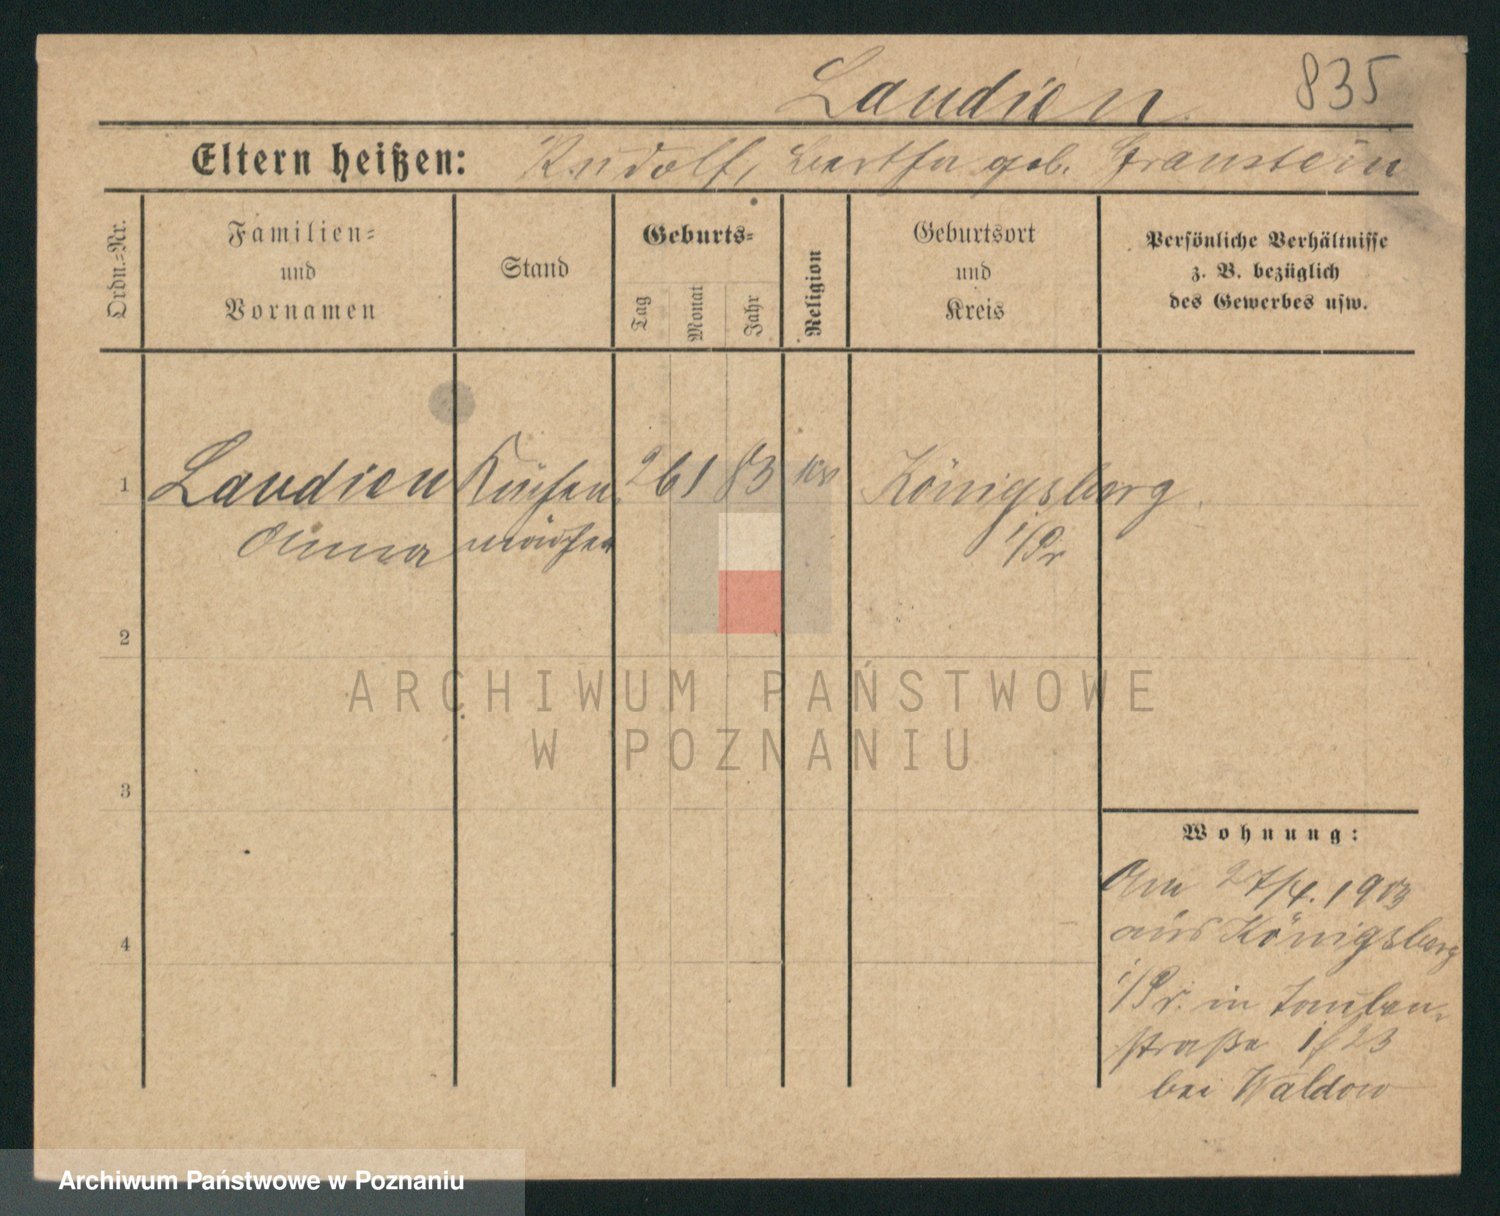 Laudien 835
Eltern heißen: Rudolf, Bertha geb. Granstein
Ordn.-Nr.
Familien-
und
Vornamen
Stand
Geburts-
Tag
Monat
Jahr
Religion
Geburtsort
und
Kreis
Persönliche Verhältnisse
z. B. bezüglich
des Gewerbes usw.
1 Laudien Küchen 26 1 83 Königsberg
Anna mädchen i/Pr
2
3
4
ARCHIWUM PAŃSTWOWE
W POZNANIU
Wohnung:
Am 27/4. 1903
aus Königsberg
i/Pr. in Tauben-
straße
bei Waldow
Archiwum Państwowe w Poznaniu